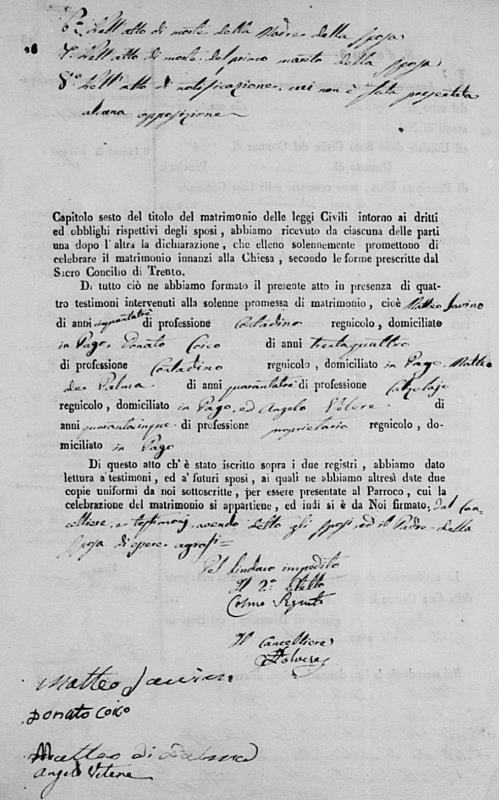 6.º Dell'atto di morte della Madre della sposa
7.º Dell'atto di morte del primo marito della sposa
8.º Dell'atto di notificazione, cui non è stata presentata
alcuna opposizione
Capitolo sesto del titolo del matrimonio delle leggi Civili intorno ai dritti
ed obblighi rispettivi degli sposi, abbiamo ricevuto da ciascuna delle parti
una dopo l'altra la dichiarazione, che elleno solennemente promettono di
celebrare il matrimonio innanzi alla Chiesa, secondo le forme prescritte dal
Sacro Concilio di Trento.
Di tutto ciò ne abbiamo formato il presente atto in presenza di quat-
tro testimoni intervenuti alla solenne promessa di matrimonio, cioè Matteo Iavino
di anni cinquantatre di professione Contadino regnicolo, domiciliato
in Pago, Donato Coico di anni trentaquattro
di professione Contadino regnicolo, domiciliato in Pago, Matteo
de Palma di anni quarantatre di professione
regnicolo, domiciliato in Pago, ed Angelo Vetere di
anni quarantacinque di professione proprietario regnicolo, do-
miciliato in Pago
Di questo atto ch'è stato iscritto sopra i due registri, abbiamo dato
lettura a' testimoni, ed a' futuri sposi, ai quali ne abbiamo altresì date due
copie uniformi da noi sottoscritte, per essere presentate al Parroco, cui la
celebrazione del matrimonio si appartiene, ed indi si è da Noi firmato, dal Can-
celliere, e testimonj, avendo detto gli sposi, ed il Padre della
sposa di essere
Pel Sindaco impedito
Il 2.º Eletto
Cosmo
Il Cancelliere
Polvere
Matteo Iavino
Donato Coico
Matteo di Palma
Angelo Vetere